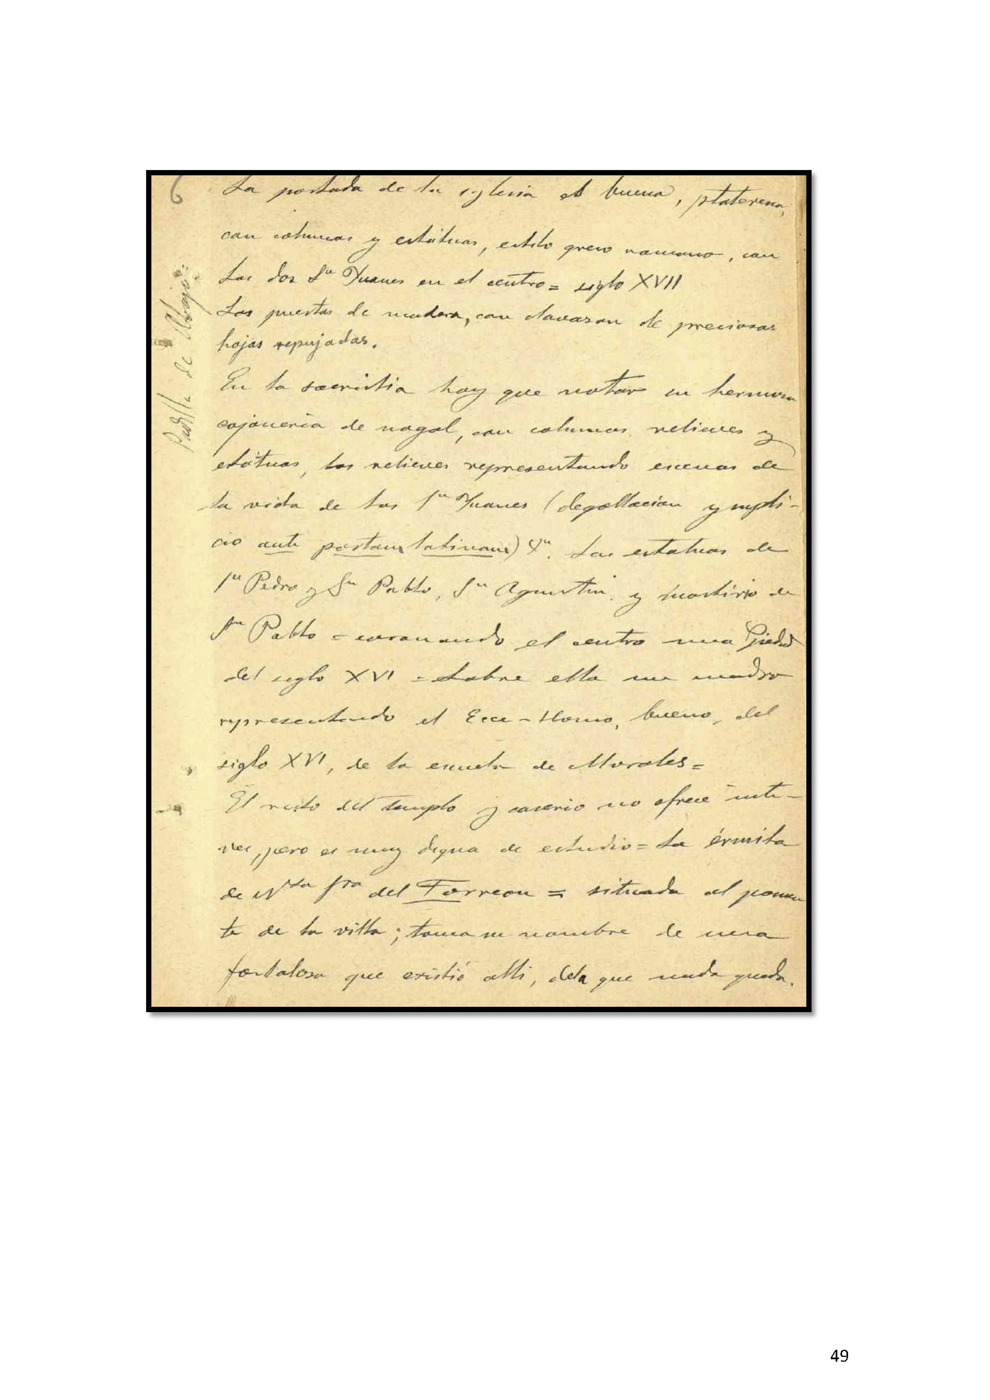 6
La portada de la iglesia es buena, plateresca,
con columnas y estátuas, estilo greco romano, con
los dos Sn Juanes en el centro = siglo XVII
Las puertas de madera, con clavazon de preciosas
hojas repujadas.
En la sacristia hay que notar su hermosa
cajoneria de nogal, con columnas, relieves y
estátuas, los relieves representando escenas de
la vida de los Sn Juanes (degollacion y supli-
cio ante portam latinam) Las estatuas de
Sn Pedro y Sn Pablo, Sn Agustin, y martirio de
Sn Pablo = coronando el centro una Piedad
del siglo XVI = Sobre ella un cuadro
representando el Ecce-Homo, bueno, del
siglo XVI, de la escuela de Morales =
El resto del templo y caserio no ofrece inte-
res, pero es muy digna de estudio = La érmita
de Ntra Sra del Torreon = situada al ponien
te de la villa; toma su nombre de una
fortalesa que existió alli, dela que nada queda.
Padilla de Abajo:
49